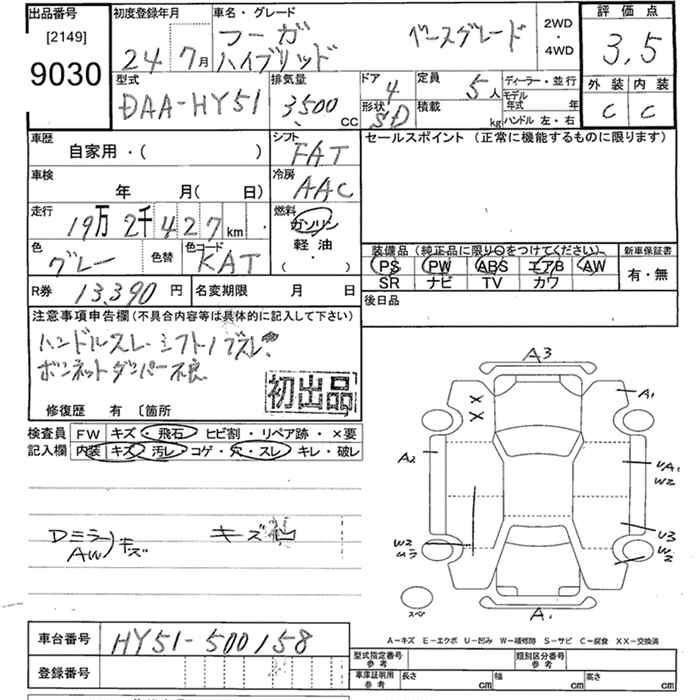 出品番号 [2149] 9030
初度登録年月 24 7月
車名・グレード フーガ ハイブリッド ベースグレード
2WD・4WD
評価点 3.5
外装 内装
C C
型式 DAA-HY51
排気量 3500 CC
ドア 4
形状 SD
定員 5人
積載 kg
ディーラー・並行
モデル年式 年
ハンドル 左・右
車歴 自家用・( )
シフト FAT
セールスポイント (正常に機能するものに限ります)
車検 年 月( 日)
冷房 AAC
走行 19万2千427km
燃料 ガソリン 軽油 ( ・ )
色 グレー 色替 色コード KAT
装備品 (純正品に限り○をつけてください) 新車保証書
PS PW ABS エアB AW 有・無
SR ナビ TV カワ
R券 13,390円 名変期限 月 日
後日品
注意事項申告欄 (不具合内容等は具体的に記入して下さい)
ハンドルスレ シフトノブスレ
ボンネットダンパー不良
初出品
修復歴 有 〔箇所
検査員記入欄 FW キズ・飛石・ヒビ割・リペア跡・×要
内装 キズ・汚レ・コゲ・穴・スレ・キレ・破レ
Dミラー AW キズ
キズ
A3
A1
A2
UA1
W2
U3
W2
W2
ムラ
スペア
A1
A-キズ E-エクボ U-凹み W-補修跡 S-サビ C-腐食 XX-交換済
車台番号 HY51-500158
登録番号
型式指定番号 参考 類別区分番号 参考
車庫証明用 参考 長さ cm 幅 cm 高さ cm